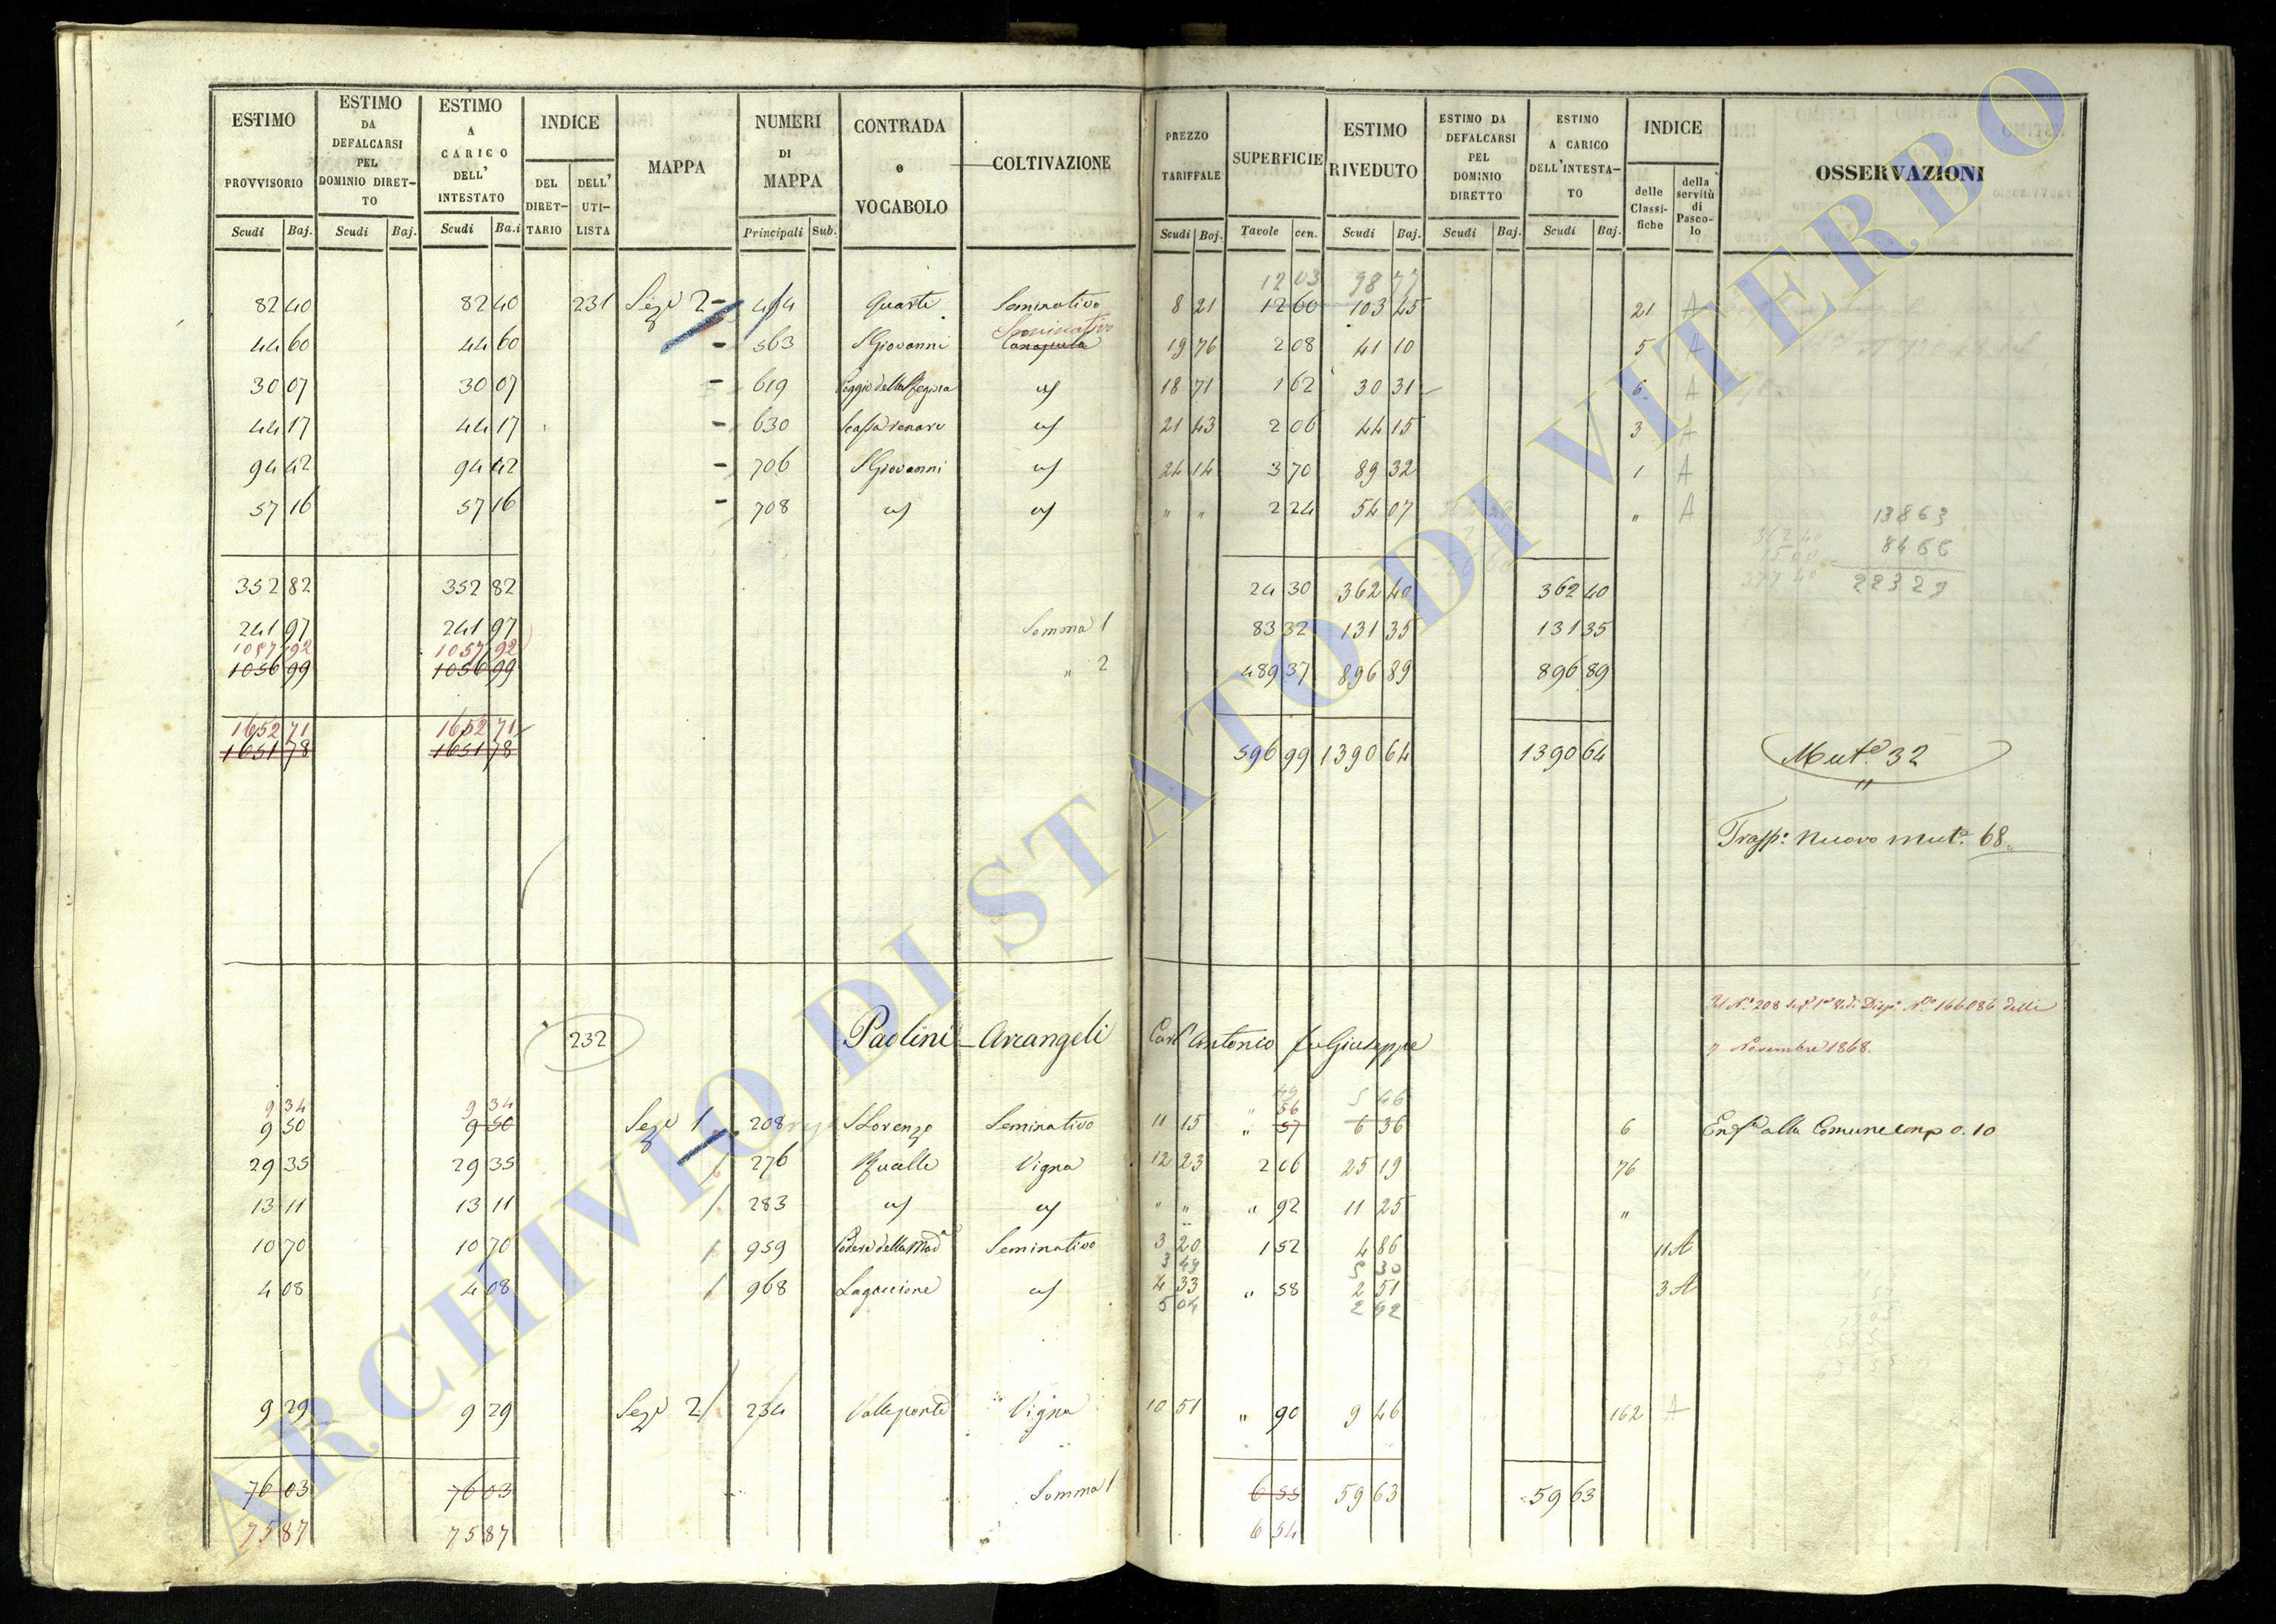 ESTIMO PROVVISORIO Scudi Baj. | ESTIMO DA DEFALCARSI PEL DOMINIO DIRET-TO Scudi Baj. | ESTIMO A CARICO DELL' INTESTATO Scudi Ba.i | INDICE DEL DIRET-TARIO | DELL' UTI-LISTA | MAPPA | NUMERI DI MAPPA Principali Sub. | CONTRADA e VOCABOLO | COLTIVAZIONE | PREZZO TARIFFALE Scudi Baj. | SUPERFICIE Tavole cen. | ESTIMO RIVEDUTO Scudi Baj. | ESTIMO DA DEFALCARSI PEL DOMINIO DIRETTO Scudi Baj. | ESTIMO A CARICO DELL'INTESTA-TO Scudi Baj. | INDICE delle Classi-fiche | della servitù di Pasco-lo | OSSERVAZIONI
12 03 98 77
82 40 82 40 231 Sezè 2 - 404 Quarti Seminativo 8 21 12 60 103 45 21 A
Seminativo
44 60 44 60 - 563 S Giovanni 19 76 2 08 41 10 5 A
30 07 30 07 - 619 Poggio della Regina 18 71 1 62 30 31 6 A
44 17 44 17 - 630 21 43 2 06 44 15 3 A
94 42 94 42 - 706 S Giovanni 24 14 3 70 89 32 1 A
57 16 57 16 - 708 " " 2 24 54 07 " A
13863
362 40 8466
15 00
377 40 22329
352 82 352 82 24 30 362 40 362 40
241 97 241 97 Somma 1 83 32 131 35 131 35
1057 92 1057 92
1056 99 1056 99 " 2 489 37 896 89 896 89
1652 71 1652 71
1651 78 1651 78 596 99 1390 64 1390 64 Mut.e 32
"
Trasp: Nuovo mut.e 68
Nov. 1868
232 Paolini - Arcangeli Can.co Antonio fu Giuseppe
9 Novembre 1868.
9 34 9 34 49 5 46
" 56
9 50 9 50 Sezè 1 208 S Lorenzo Seminativo 11 15 " 57 6 36 6 Enf.a alla Comune 0. 10
29 35 29 35 276 Vigna 12 23 2 06 25 19 76
13 11 13 11 283 " " " 92 11 25 "
10 70 10 70 959 Podere della Mad.a Seminativo 3 20 1 52 4 86 11 A
3 49 5 30
4 08 4 08 968 Lagaccione 4 33 " 58 2 51 3 A
5 04 2 92
9 29 9 29 Sezè 2 234 Valleponte Vigna 10 51 " 90 9 46 162 A
76 03 76 03 Somma 1 6 55 59 63 59 63
75 87 75 87 6 54
ARCHIVIO DI STATO DI VITERBO